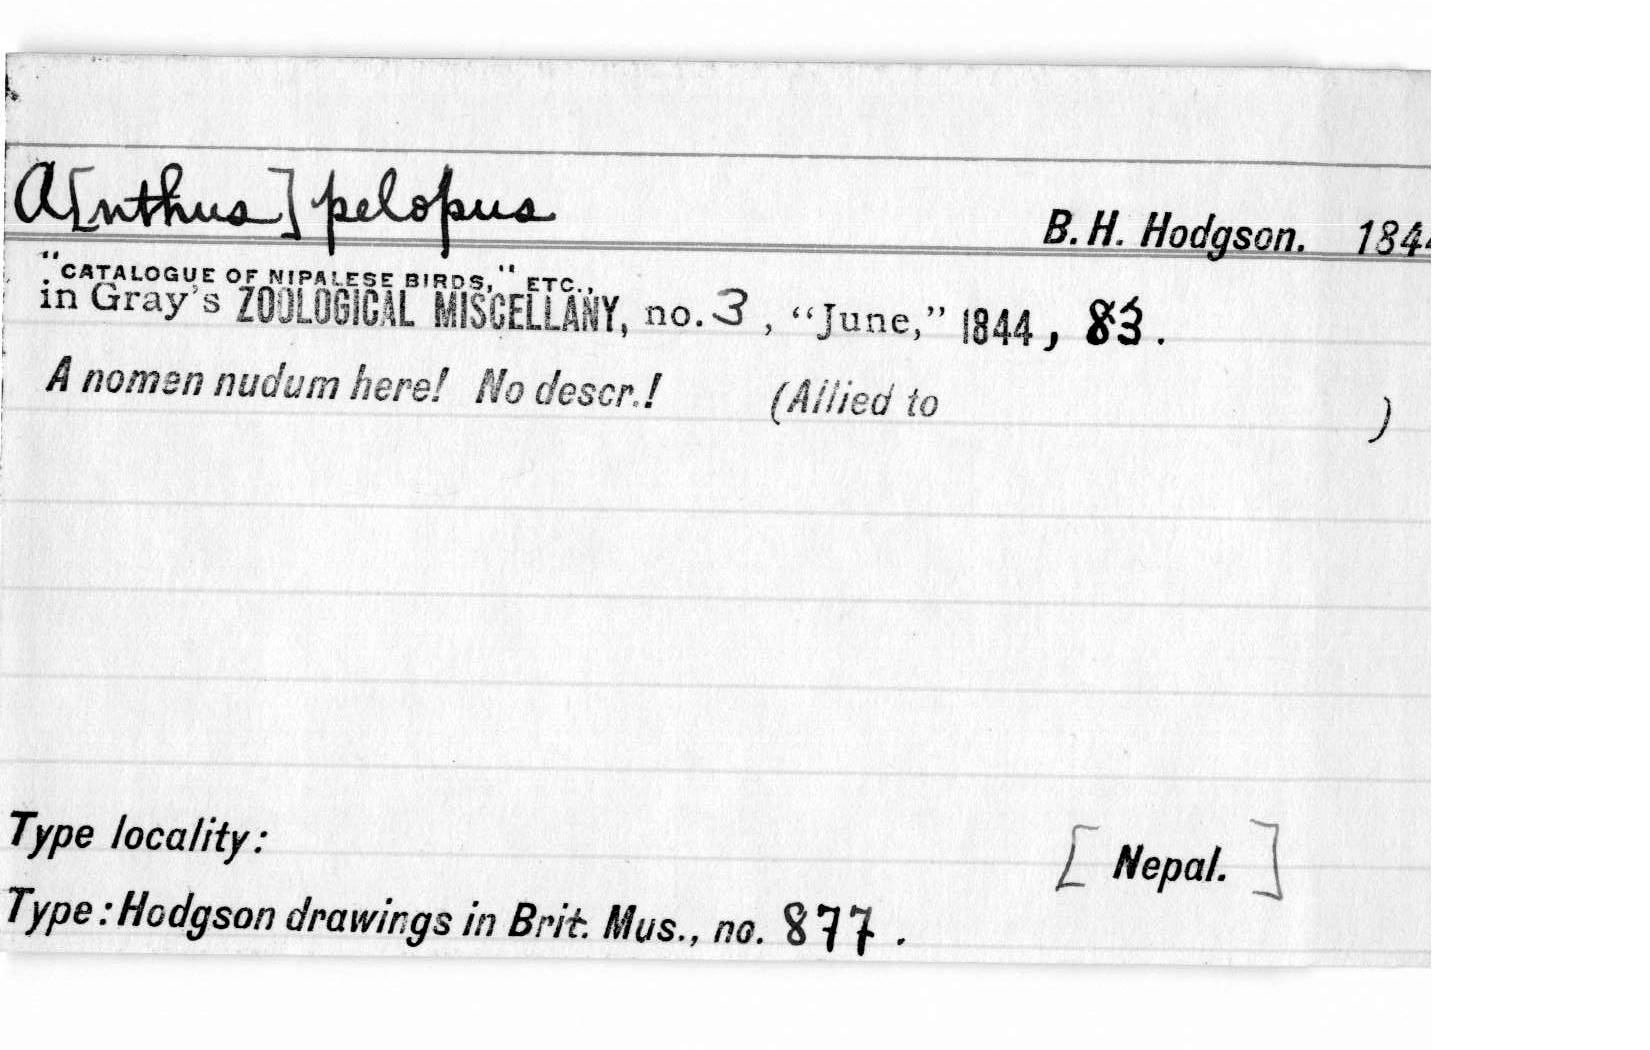 A[nthus] pelopus
B. H. Hodgson. 1844
"CATALOGUE OF NIPALESE BIRDS," ETC.,
in Gray's ZOOLOGICAL MISCELLANY, no. 3, "June," 1844, 83.
A nomen nudum here! No descr.! (Allied to )
Type locality: [Nepal.]
Type: Hodgson drawings in Brit. Mus., no. 877.